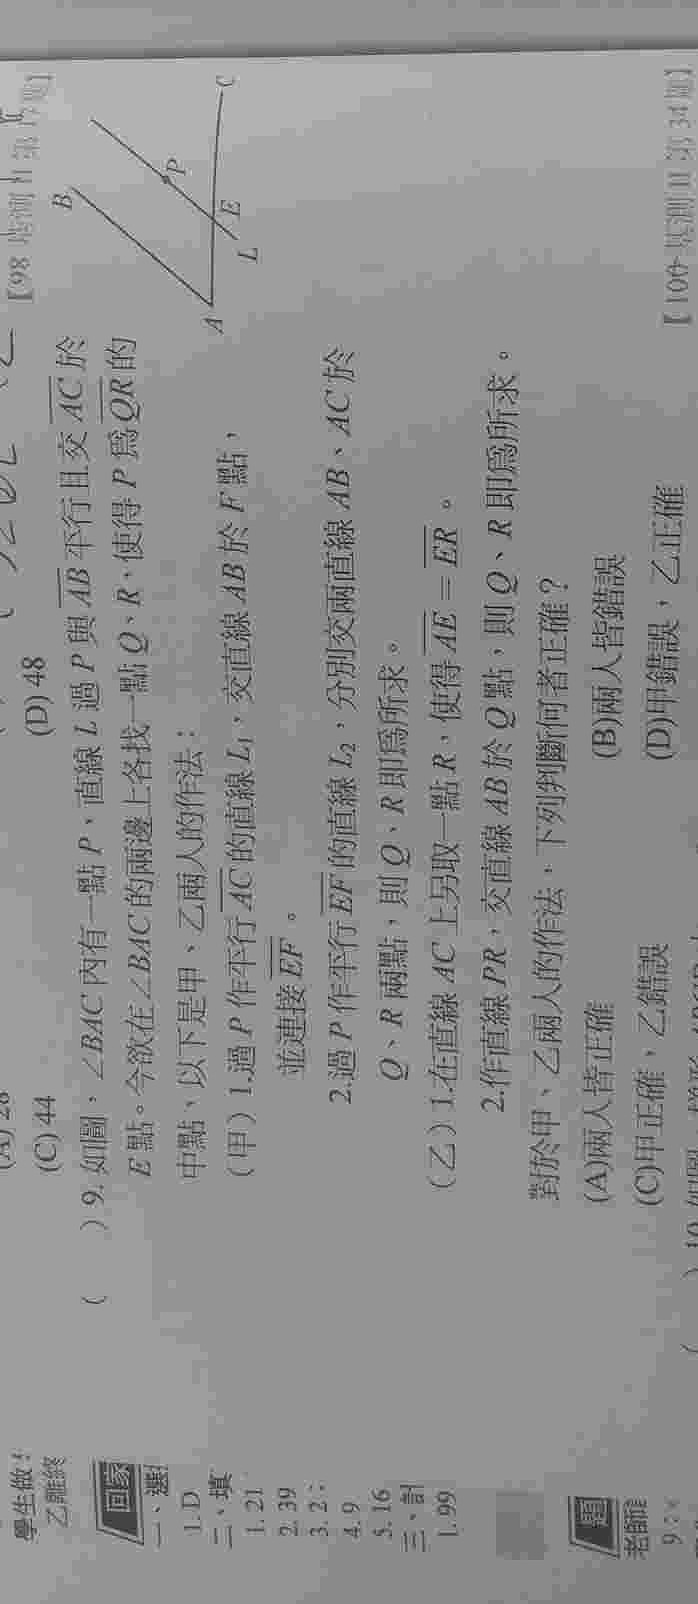 (C) 44 (D) 48
( ) 9. 如圖，∠BAC 內有一點 P、直線 L 過 P 與 AB 平行且交 AC 於
E 點。今欲在∠BAC 的兩邊上各找一點 Q、R，使得 P 為 QR 的
中點、以下是甲、乙兩人的作法：
（甲）1.過 P 作平行 AC 的直線 L₁，交直線 AB 於 F 點，
並連接 EF。
2.過 P 作平行 EF 的直線 L₂，分別交兩直線 AB、AC 於
Q、R 兩點，則 Q、R 即為所求。
（乙）1.在直線 AC 上另取一點 R，使得 AE = ER。
2.作直線 PR，交直線 AB 於 Q 點，則 Q、R 即為所求。
對於甲、乙兩人的作法，下列判斷何者正確？
(A)兩人皆正確 (B)兩人皆錯誤
(C)甲正確，乙錯誤 (D)甲錯誤，乙正確
【100 基測 II 第 34 題】
B
P
A
L
E
C
學生做！
乙離終
回家
一、選
1. D
二、填
1. 21
2. 39
3. 2：
4. 9
5. 16
三、計
1. 99
老師